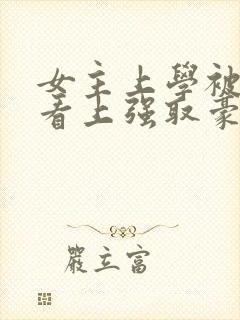 女主上學被
看上强取豪
嚴立富